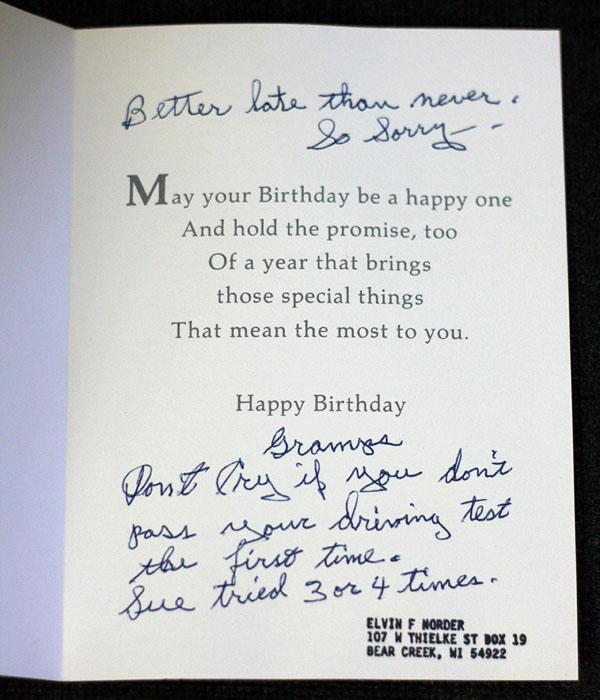 Better late than never.
So Sorry —
May your Birthday be a happy one
And hold the promise, too
Of a year that brings
those special things
That mean the most to you.
Happy Birthday
Gramps
Don't Cry if you don't
pass your driving test
the first time.
Sue tried 3 or 4 times.
ELVIN F NORDER
107 W THIELKE ST BOX 19
BEAR CREEK, WI 54922